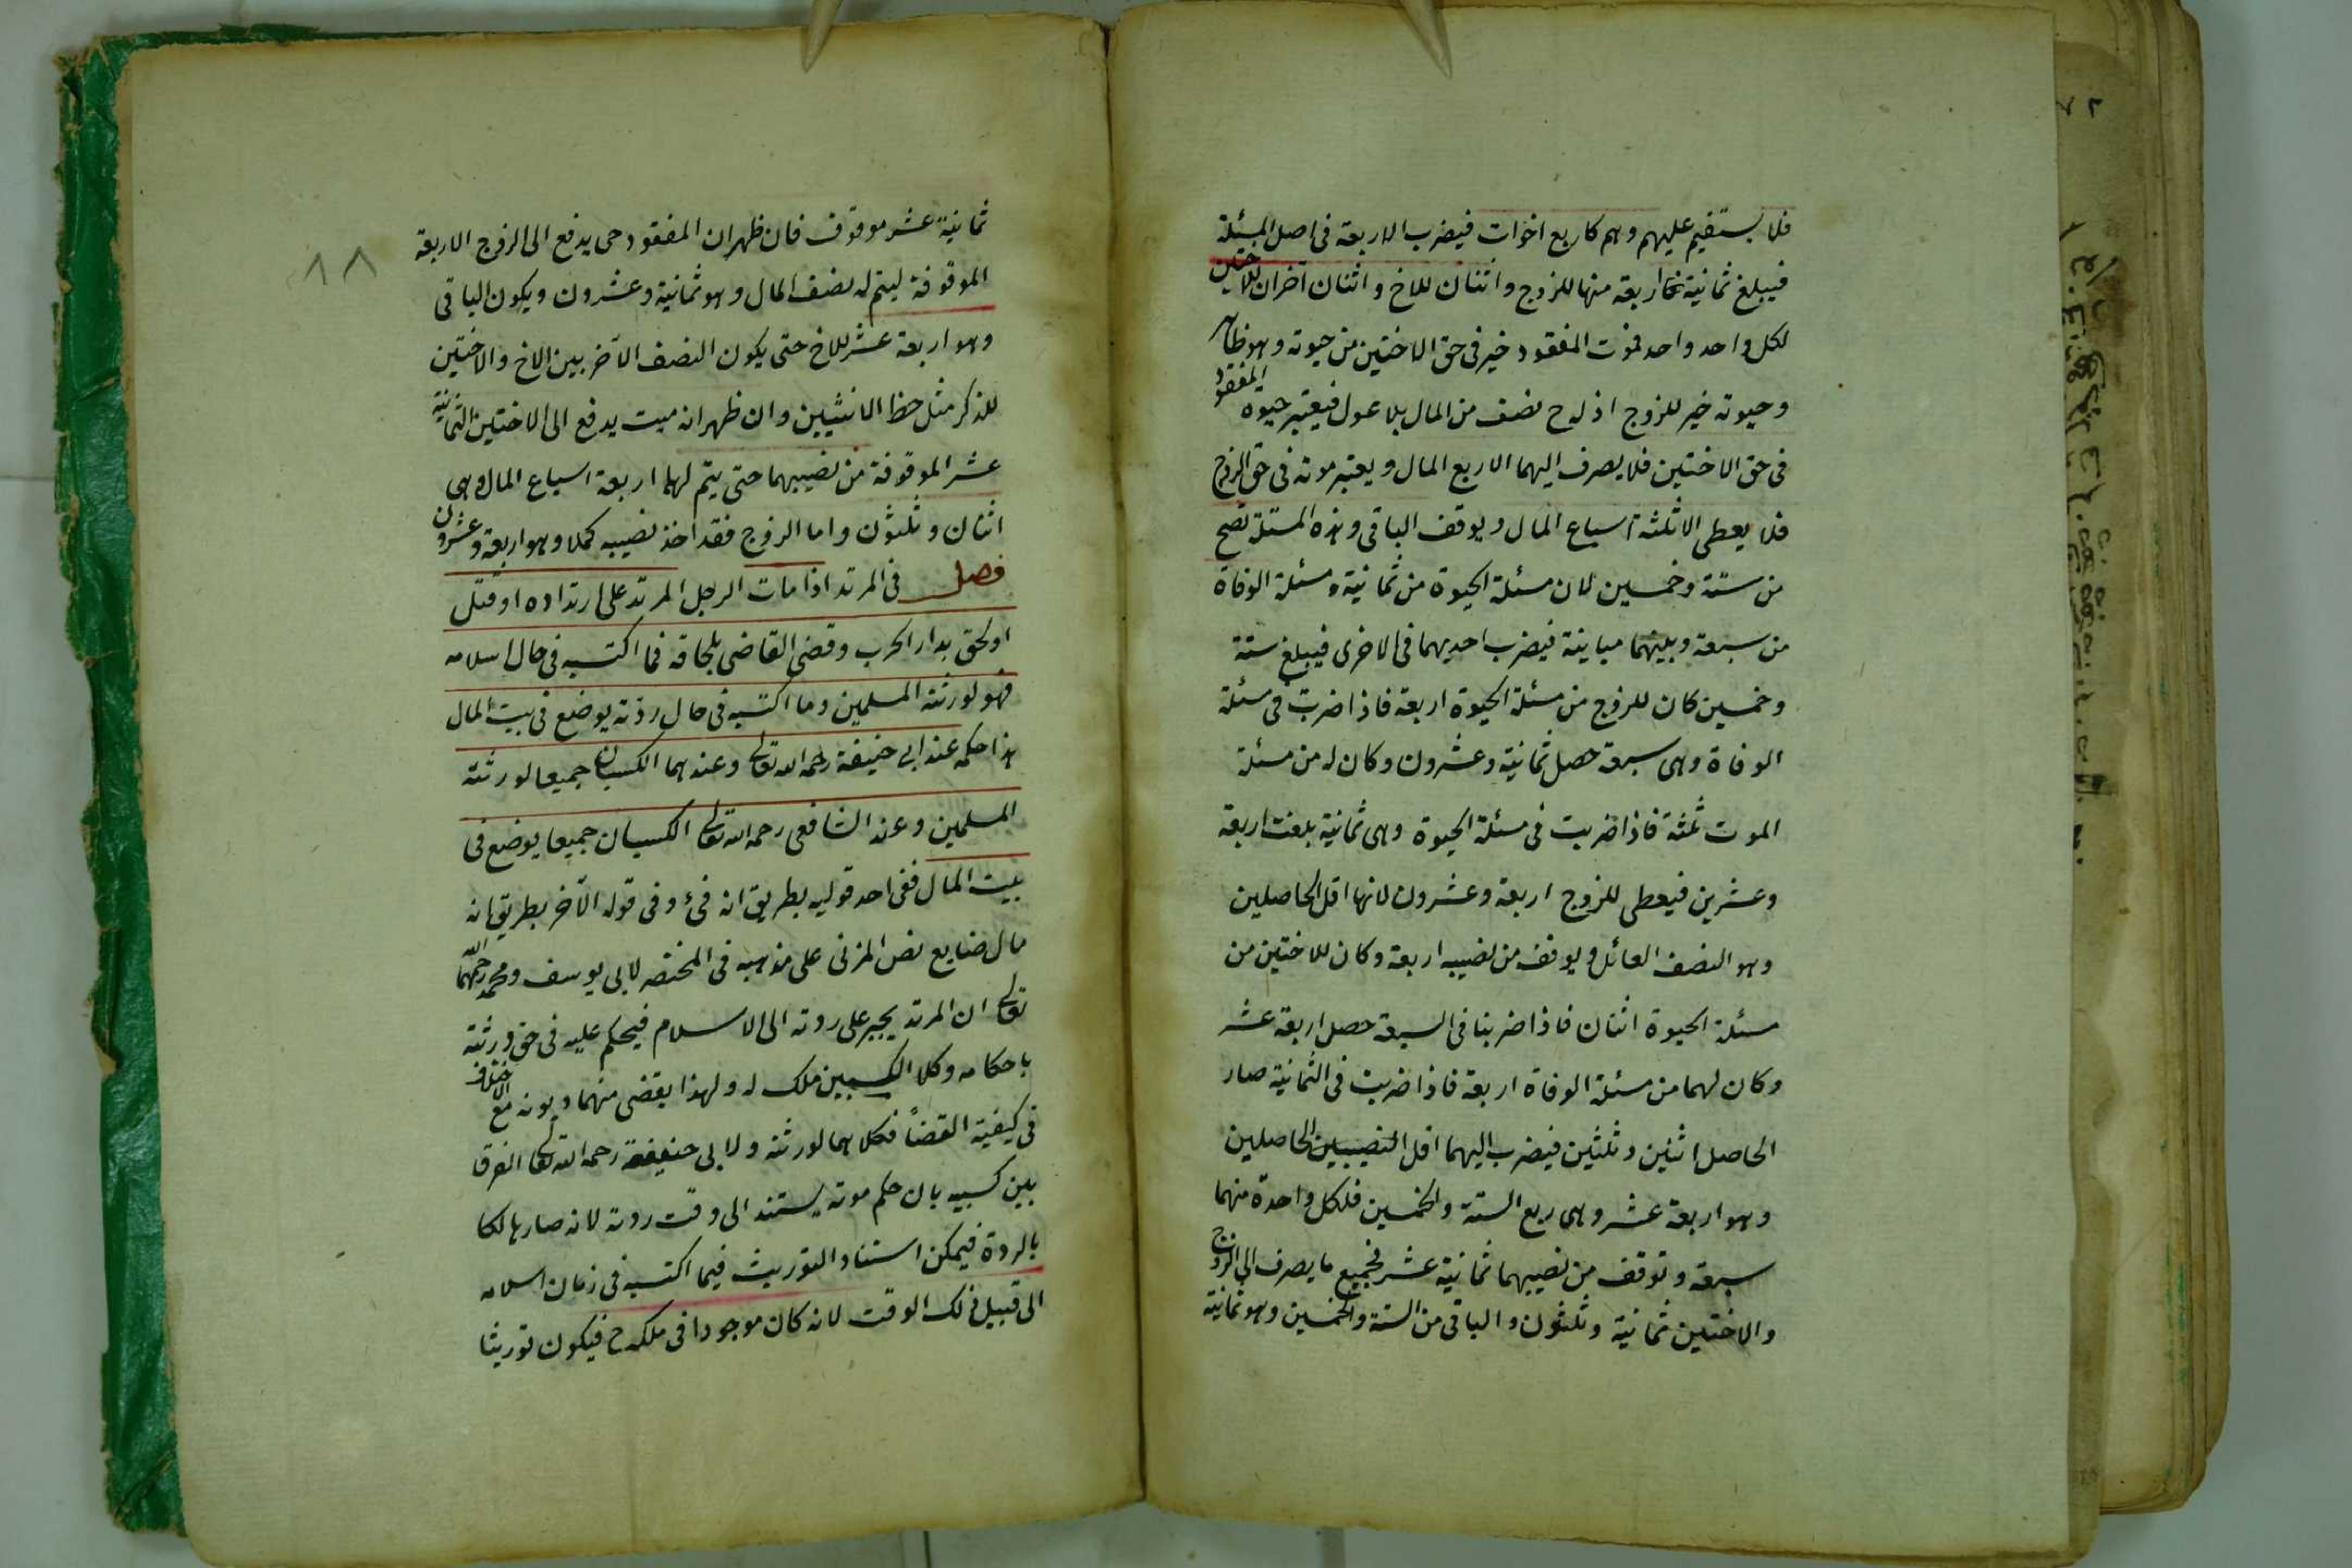 فلا يستقيم عليهم وهم كاربع اخوات فيضرب الاربعة فى اصل المسئلة
فيبلغ ثمانية فح اربعة منها للزوج واثنان للاخ واثنان آخران للاختين
لكل واحد واحد فموت المفقود خير فى حق الاختين من حيوته وهو ظاهر
وحيوته خير للزوج اذ له ح نصف من المال بلا عول فيعتبر حيوه المفقود
فى حق الاختين فلا يصرف اليهما الا ربع المال ويعتبر موته فى حق الزوج
فلا يعطى الا ثلثة اسباع المال ويوقف الباقى وهذه المسئلة تصح
من ستة وخمسين لان مسئلة الحيوة من ثمانية ومسئلة الوفاة
من سبعة وبينهما مباينة فيضرب احديهما فى الاخرى فيبلغ ستة
وخمسين كان للزوج من مسئلة الحيوة اربعة فاذا ضربت فى مسئلة
الوفاة وهى سبعة حصل ثمانية وعشرون وكان له من مسئلة
الموت ثلثة فاذا ضربت فى مسئلة الحيوة وهى ثمانية بلغت اربعة
وعشرين فيعطى للزوج اربعة وعشرون لانها اقل الحاصلين
وهو النصف العائل ويوقف من نصيبه اربعة وكان للاختين من
مسئلة الحيوة اثنان فاذا ضربنا فى السبعة حصل اربعة عشر
وكان لهما من مسئلة الوفاة اربعة فاذا ضربت فى الثمانية صار
الحاصل اثنين وثلثين فيضرب اليهما اقل النصيبين الحاصلين
وهو اربعة عشر وهى ربع الستة والخمسين فلكل واحدة منهما
سبعة وتوقف من نصيبهما ثمانية عشر فجميع ما يصرف الى الزوج
والاختين ثمانية وثلثون والباقى من الستة والخمسين وهو ثمانية
ثمانية عشر موقوف فان ظهر ان المفقود حى يدفع الى الزوج الاربعة
الموقوفة ليتم له نصف المال وهو ثمانية وعشرون ويكون الباقى
وهو اربعة عشر للاخ حتى يكون النصف الآخر بين الاخ والاختين
للذكر مثل حظ الانثيين وان ظهر انه ميت يدفع الى الاختين الثمانية
عشر الموقوفة من نصيبهما حتى يتم لهما اربعة اسباع المال وهى
اثنان وثلثون واما الزوج فقد اخذ نصيبه كملا وهو اربعة وعشرون
فصل فى المرتد اذا مات الرجل المرتد على ارتداده او قتل
او لحق بدار الحرب وقضى القاضى بلحاقه فما اكتسبه فى حال اسلامه
فهو لورثته المسلمين وما اكتسبه فى حال ردته يوضع فى بيت المال
هذا حكمه عند ابى حنيفة رحمه الله تعالى وعندهما الكسبان جميعا لورثته
المسلمين وعند الشافعى رحمه الله تعالى الكسبان جميعا يوضع فى
بيت المال ففى احد قوليه بطريق انه فئ وفى قوله الآخر بطريق انه
مال ضايع نص المزنى على مذهبه فى المختصر لابى يوسف ومحمد رحمهما الله
تعالى ان المرتد يجبر على ردته الى الاسلام فيحكم عليه فى حق ورثته
باحكامه وكلا الكسبين ملك له ولهذا يقضى منهما ديونه مع الاختلاف
فى كيفية القضاً فكلاهما لورثته ولابى حنيفة رحمه الله تعالى الفرق
بين كسبيه بان حكم موته يستند الى وقت ردته لانه صار هالكا
بالردة فيمكن استناد التوريث فيما اكتسبه فى زمان اسلامه
الى قبيل ذلك الوقت لانه كان موجودا فى ملكه ح فيكون توريثا